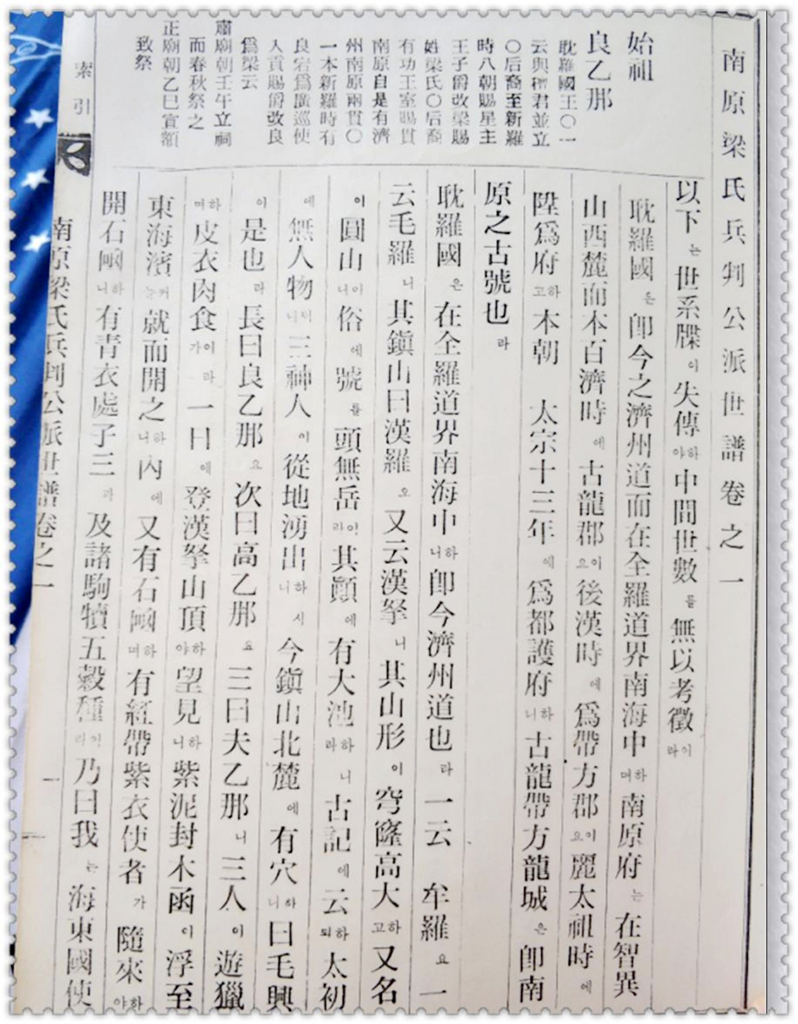 南原梁氏兵判公派世譜卷之一
始祖
良乙那
耽羅國王〇一
云與檀君並立
〇后裔至新羅
時入朝賜星主
王子爵改梁賜
姓梁氏〇后裔
有功王室賜貫
南原自是有濟
州南原兩貫〇
一本新羅時有
良宕爲廣巡使
入貢賜爵改良
爲梁云
肅廟朝壬午立祠
而春秋祭之
正廟朝乙巳宣額
致祭
以下는世系牒이失傳하야中間世數를無以考徵이라
耽羅國은卽今之濟州道而在全羅道界南海中하며南原府는在智異
山西麓而本百濟時에古龍郡이요後漢時에爲帶方郡이요麗太祖時에
陞爲府하고本朝 太宗十三年에爲都護府하니古龍帶方龍城은卽南
原之古號也라
耽羅國은在全羅道界南海中하니卽今濟州道也라一云 牟羅요一
云毛羅니其鎭山曰漢羅요又云漢拏니其山形이穹窿高大하고又名
이圓山이니俗에號를頭無岳이라其顚에有大池하니라古記에云하되太初
에無人物이니三神人이從地湧出하니시今鎭山北麓에有穴하니曰毛興
이是也라長曰良乙那요次曰高乙那요三曰夫乙那니三人이遊獵
하며皮衣肉食이라가一日에登漢拏山頂하야望見하니紫泥封木函이浮至
東海濱커늘就而開之하니內에又有石凾하며有紅帶紫衣使者가隨來하야
開石凾하니有靑衣處子三과及諸駒犢五穀種이라乃曰我는海東國使
索引
南原梁氏兵判公派世譜卷之一
一